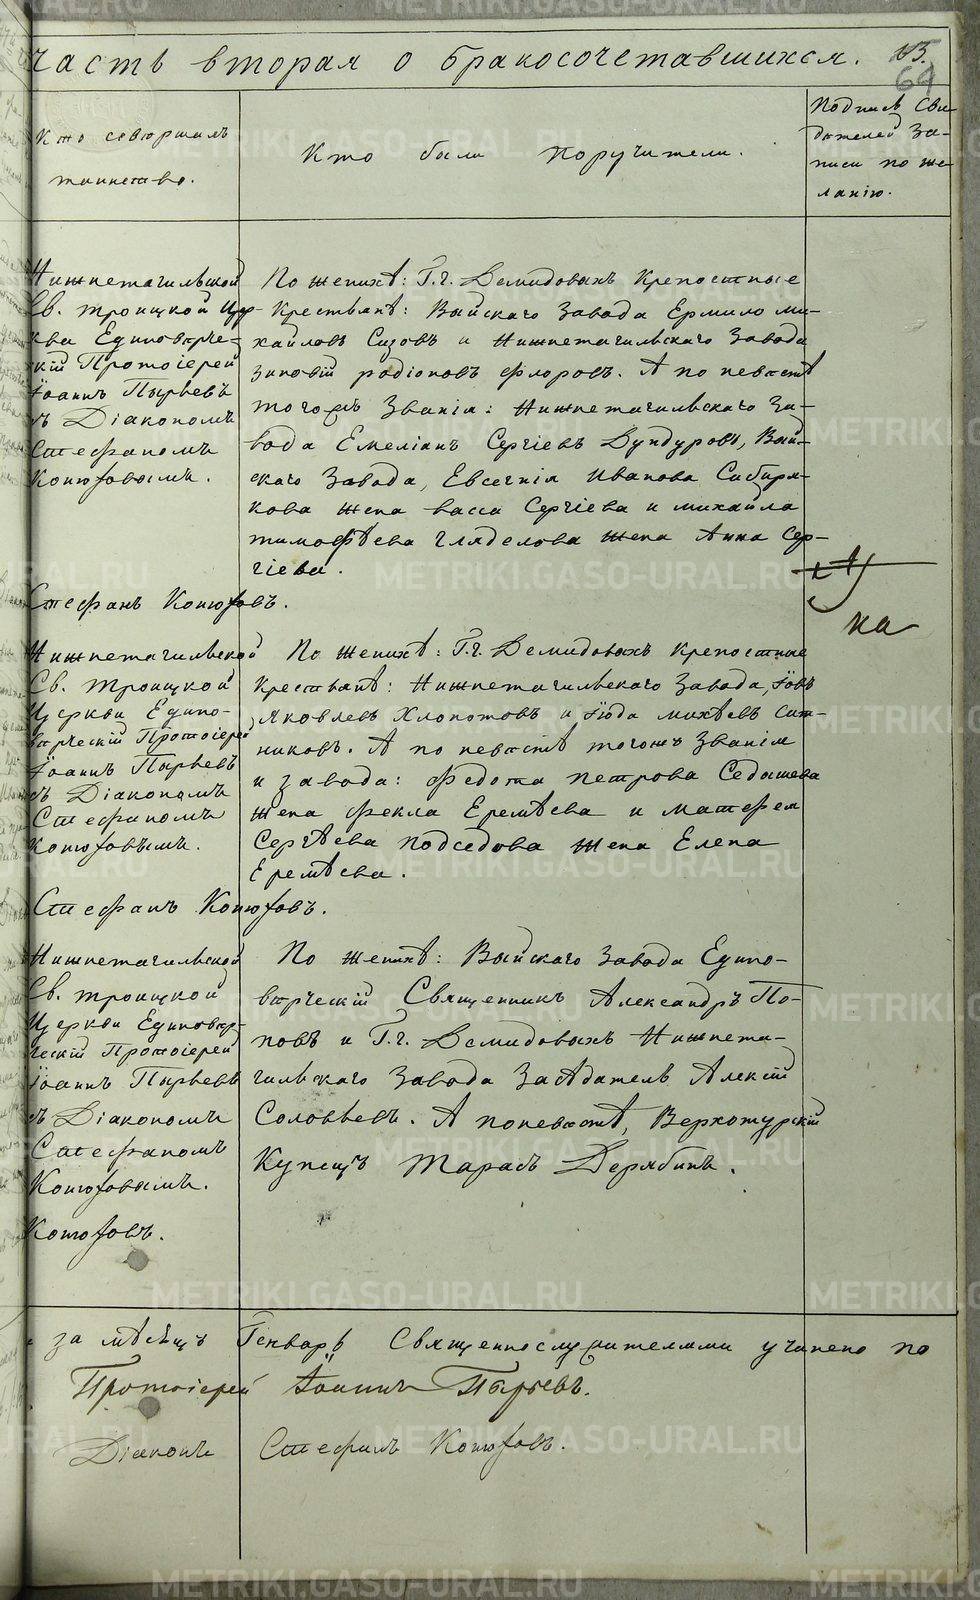 Часть вторая о бракосочетавшихся.
69
Кто совершалъ
таинство.
Кто были поручители.
Подпись Сви-
дѣтелей За-
писи по же-
ланію.
Нижнетагильской
Св. Троицкой Цер-
кви Единовѣрче-
скій Протоіерей
Іоаннъ Пырьевъ
съ Діакономъ
Стефаномъ
Конюховымъ.
Стефанъ Конюховъ.
По женихѣ: Г.г. Демидовыхъ Крепостные
Крестьянѣ: Выйскаго Завода Ермило Ми-
хайловъ Сизовъ и Нижнетагильскаго Завода
Зиновій Родіоновъ Флоровъ. А по невѣстѣ
тогожъ Званія: Нижнетагильскаго За-
вода Емеліанъ Сергіевъ Дундуровъ, Вый-
скаго Завода, Евсегнія Иванова Сибиря-
кова жена Васса Сергіева и Михайла
Тимофѣева Гляделова жена Анна Сер-
гіева.
на
Нижнетагильской
Св. Троицкой
Церкви Едино-
вѣрческій Протоіерей
Іоаннъ Пырьевъ
съ Діакономъ
Стефаномъ
Конюховымъ.
Стефанъ Конюховъ.
По женихѣ: Г.г. Демидовыхъ Крепостные
Крестьянѣ: Нижнетагильскаго Завода, Іовъ
Яковлевъ Хлопотовъ и Іюда Михѣевъ Сит-
никовъ. А по невѣстѣ тогожъ Званія
и завода: Федота Петрова Седышева
жена Фекла Еремѣева и Матфея
Сергѣева Подседова жена Елена
Еремѣева.
Нижнетагильской
Св. Троицкой
Церкви Единовѣр-
ческій Протоіерей
Іоаннъ Пырьевъ
съ Діакономъ
Стефаномъ
Конюховымъ.
Конюховъ.
По женихѣ: Выйскаго Завода Едино-
вѣрческій Священникъ Александръ По-
повъ и Г.г. Демидовыхъ Нижнета-
гильскаго Завода Засѣдатель Алексій
Соловьевъ. А поневѣстѣ, Верхотурскій
Купецъ Тарасъ Дерябинъ.
за мѣсяцъ Генварь Священнослужителями учинено по
Протоіерей Іоаннъ Пырьевъ.
Діаконъ Стефанъ Конюховъ.
METRIKI.GASO-URAL.RU